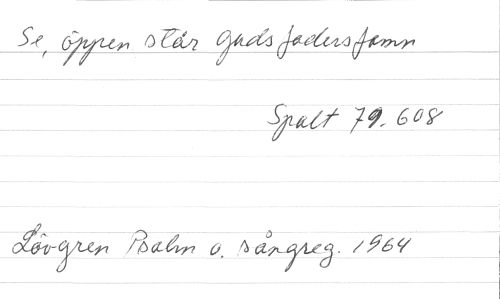 Se, öppen står Guds fadersfamn
Spalt 79. 608
Lövgren Psalm o. sångreg. 1964